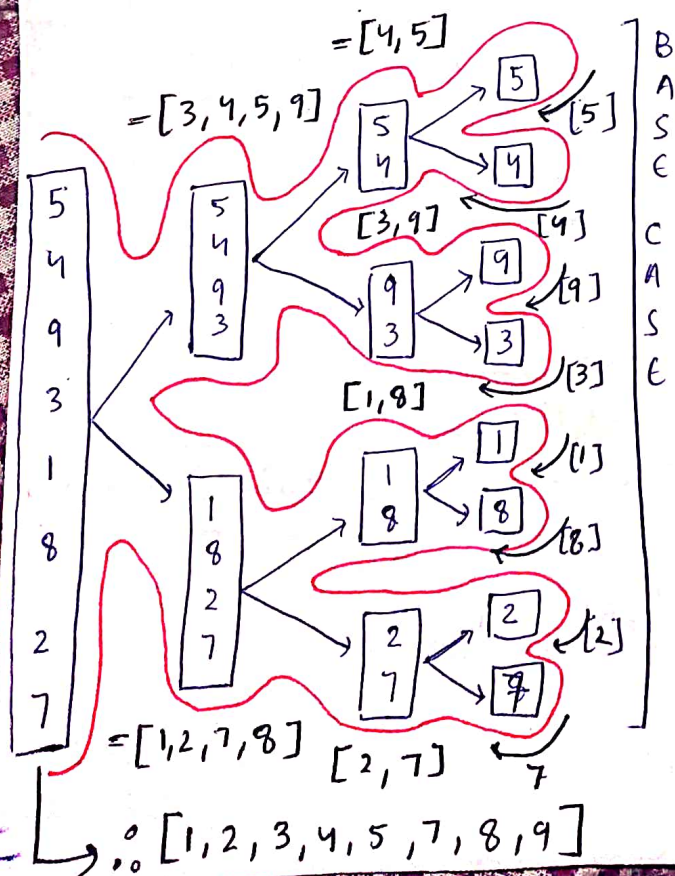 = [4, 5]
= [3, 4, 5, 9]
5
4
9
3
1
8
2
7
5
4
9
3
5
4
5
4
[5]
[4]
[3, 9]
9
3
9
3
[9]
[3]
[1, 8]
1
8
2
7
1
8
1
8
[1]
[8]
2
7
2
[2]
7
= [1, 2, 7, 8]
[2, 7]
BASE
CASE
∴ [1, 2, 3, 4, 5, 7, 8, 9]